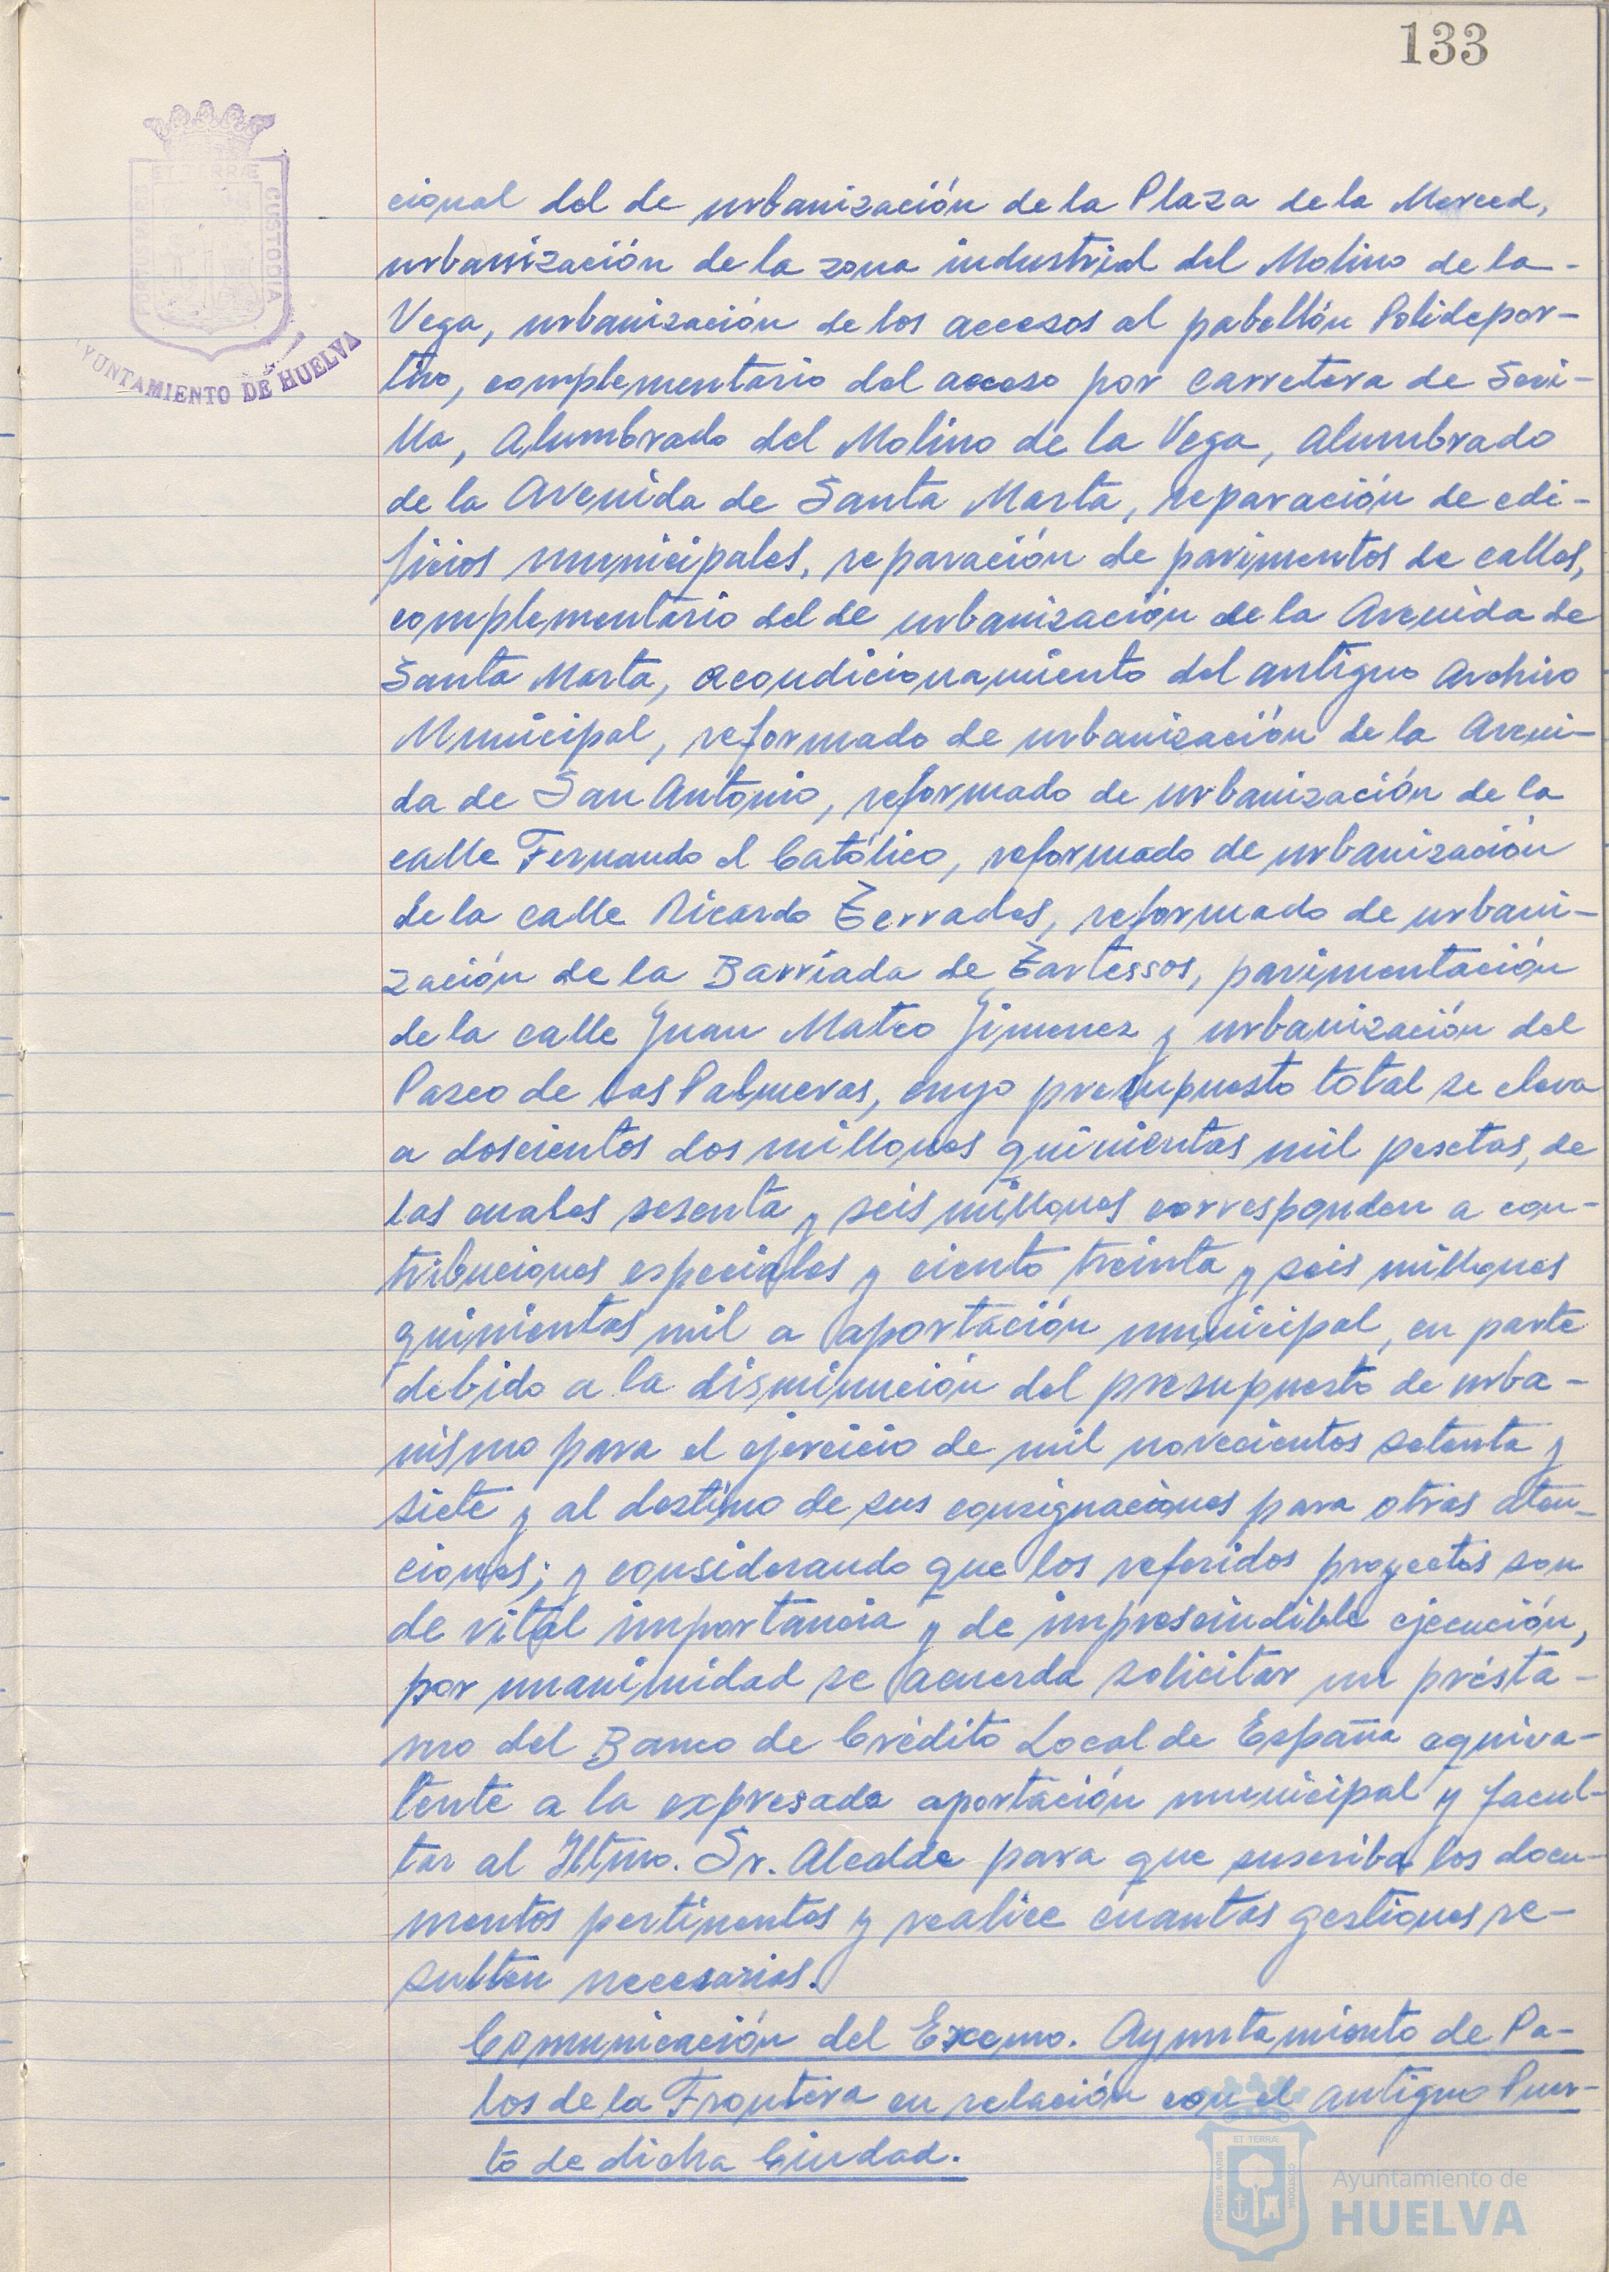 133
ET TERRÆ
PORTUS MARIS
CUSTODIA
AYUNTAMIENTO DE HUELVA
cional del de urbanización de la Plaza de la Merced,
urbanización de la zona industrial del Molino de la-
Vega, urbanización de los accesos al pabellón Polidepor-
tivo, complementario del acceso por carretera de Sevi-
lla, Alumbrado del Molino de la Vega, Alumbrado
de la Avenida de Santa Marta, reparación de edi-
ficios municipales, reparación de pavimentos de calles,
complementario del de urbanización de la Avenida de
Santa Marta, acondicionamiento del antiguo Archivo
Municipal, reformado de urbanización de la Aveni-
da de San Antonio, reformado de urbanización de la
calle Fernando el Católico, reformado de urbanización
de la calle Ricardo Terrades, reformado de urbani-
zación de la Barriada de Tartessos, pavimentación
de la calle Juan Mateo Jimenez y urbanización del
Paseo de las Palmeras, cuyo presupuesto total se eleva
a doscientos dos millones quinientas mil pesetas, de
las cuales sesenta y seis millones corresponden a con-
tribuciones especiales y ciento treinta y seis millones
quinientas mil a aportación municipal, en parte
debido a la disminución del presupuesto de urba-
nismo para el ejercicio de mil novecientos setenta y
siete y al destino de sus consignaciones para otras aten-
ciones; y considerando que los referidos proyectos son
de vital importancia y de imprescindible ejecución,
por unanimidad se acuerda solicitar un présta-
mo del Banco de Crédito Local de España equiva-
lente a la expresada aportación municipal y facul-
tar al Iltmo. Sr. Alcalde para que suscriba los docu-
mentos pertinentes y realice cuantas gestiones re-
sulten necesarias.
Comunicación del Excmo. Ayuntamiento de Pa-
los de la Frontera en relación con el antiguo Puer-
to de dicha Ciudad.
ET TERRÆ
PORTUS MARIS
CUSTODIA
Ayuntamiento de
HUELVA